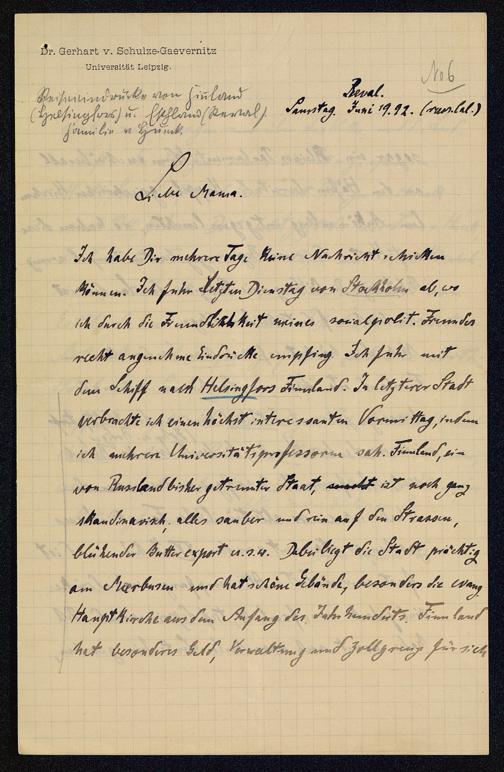 Dr. Gerhart v. Schulze-Gaevernitz
Universität Leipzig.
No 6
Reiseeindrücke von Finland
(Helsingfors) u. Esthland (Reval)
Familie v
Reval.
Samstag. Juni 19. 92. (russ. Cal.)
Liebe Mama.
Ich habe Dir mehrere Tage keine Nachricht schicken
können. Ich fuhr letzten Dienstag von Stockholm ab, wo
ich durch die Freundlichkeit meines socialpolit. Freundes
recht angenehme Eindrücke empfing. Ich fuhr mit
dem Schiff nach Helsingfors Finnland. In letzterer Stadt
verbrachte ich einen höchst interessanten Vormittag, indem
ich mehrere Universitätsprofessoren sah. Finnland, ein
von Russland bisher getrennter Staat, ist noch ganz
skandinavisch, alles sauber und rein auf den Strassen,
blühender Butterexport u.s.w. Dabei liegt die Stadt prächtig
am Meerbusen und hat schöne Gebäude, besonders die evang.
Hauptkirche aus dem Anfang des Jahrhunderts. Finnland
hat besonderes Geld, Verwaltung und Zollgrenze für sich